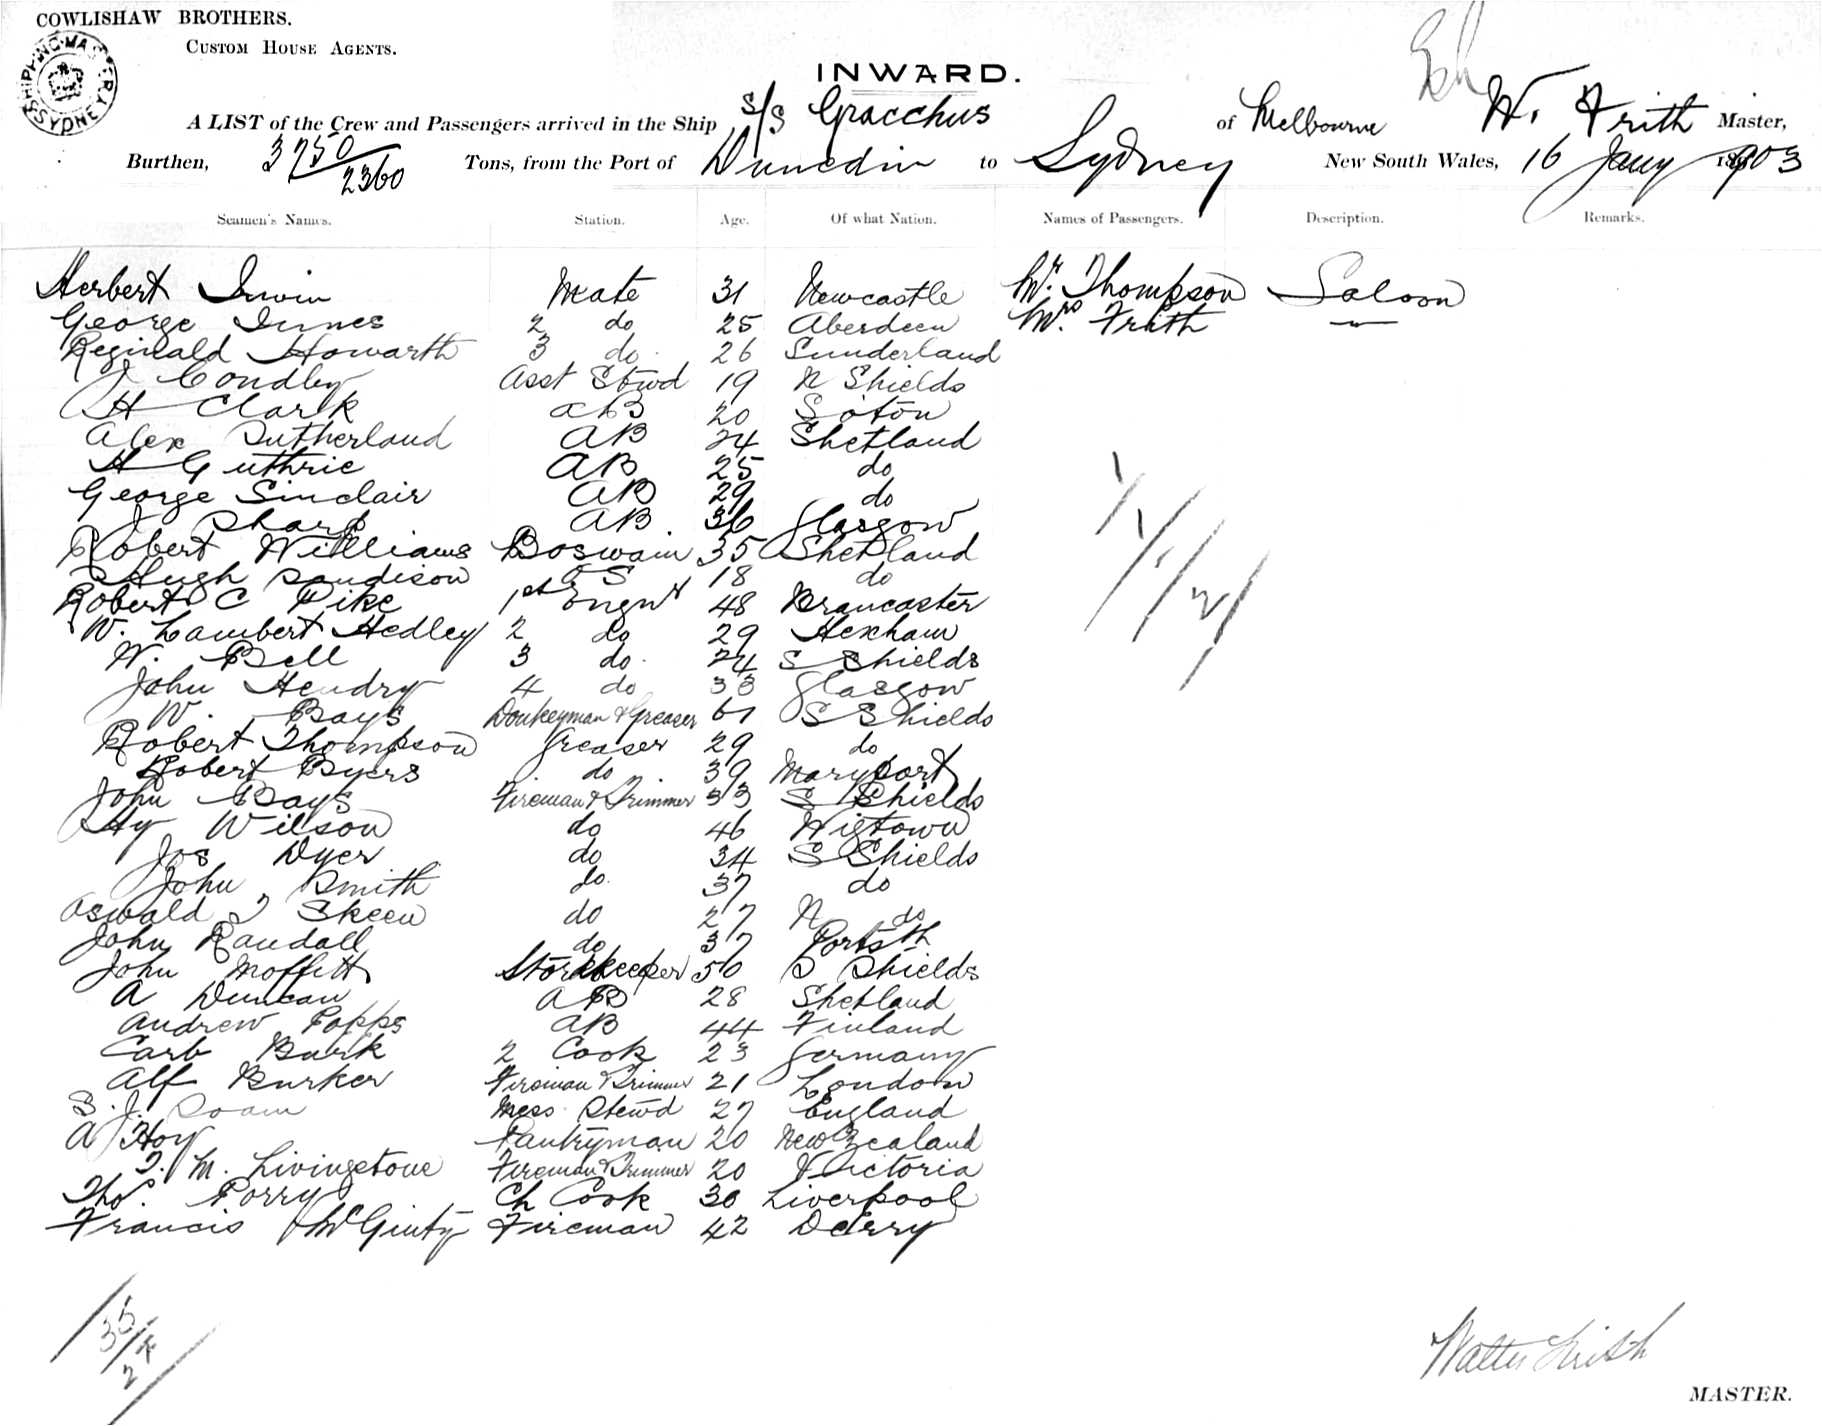 COWLISHAW BROTHERS.
CUSTOM HOUSE AGENTS.
SHIPPING MASTER SYDNEY
INWARD.
A LIST of the Crew and Passengers arrived in the Ship S/S Gracchus of Melbourne W. Frith Master,
Burthen, 3750/2360 Tons, from the Port of Dunedin to Sydney New South Wales, 16 Jany 1903
Seamen's Names. Station. Age. Of what Nation. Names of Passengers. Description. Remarks.
Herbert Irwin Mate 31 Newcastle Mr. Thompson Saloon
George Innes 2 do 25 Aberdeen Mrs. Frith "
Reginald Howarth 3 do 26 Sunderland
J Condley Asst Stewd 19 N Shields
H Clark AB 20 Soton
Alex Sutherland AB 24 Shetland
H Guthrie AB 25 do
George Sinclair AB 29 do
J Sharp AB 36 Glasgow
Robert Williams Boswain 35 Shetland
Hugh Sandison OS 18 do
Robert C Pike 1st Engnr 48 Brancaster
W. Lambert Hedley 2 do 29 Hexham
W. Bell 3 do 24 S Shields
John Hendry 4 do 33 Glasgow
W. Bays Donkeyman & Greaser 61 S Shields
Robert Thompson Greaser 29 do
Robert Byers do 39 Maryport
John Bays Fireman & Trimmer 33 S Shields
Hy Wilson do 46 Wigtown
Jos Dyer do 34 S Shields
John Smith do 37 do
Oswald J Skeen do 27 N do
John Randall do 37 Portsth
John Moffitt Storekeeper 50 S Shields
A Duncan AB 28 Shetland
Andrew Popps AB 44 Finland
Carb Burk 2 Cook 23 Germany
Alf Burker Fireman & Trimmer 21 London
S. J. Soam Mess Stewd 27 England
A Hoy Pantryman 20 New Zealand
T. M. Livingstone Fireman & Trimmer 20 Victoria
Thos. Porry Ch Cook 30 Liverpool
Francis McGinty Fireman 42 Derry
1/1/1/2/
35/2
Walter Frith
MASTER.